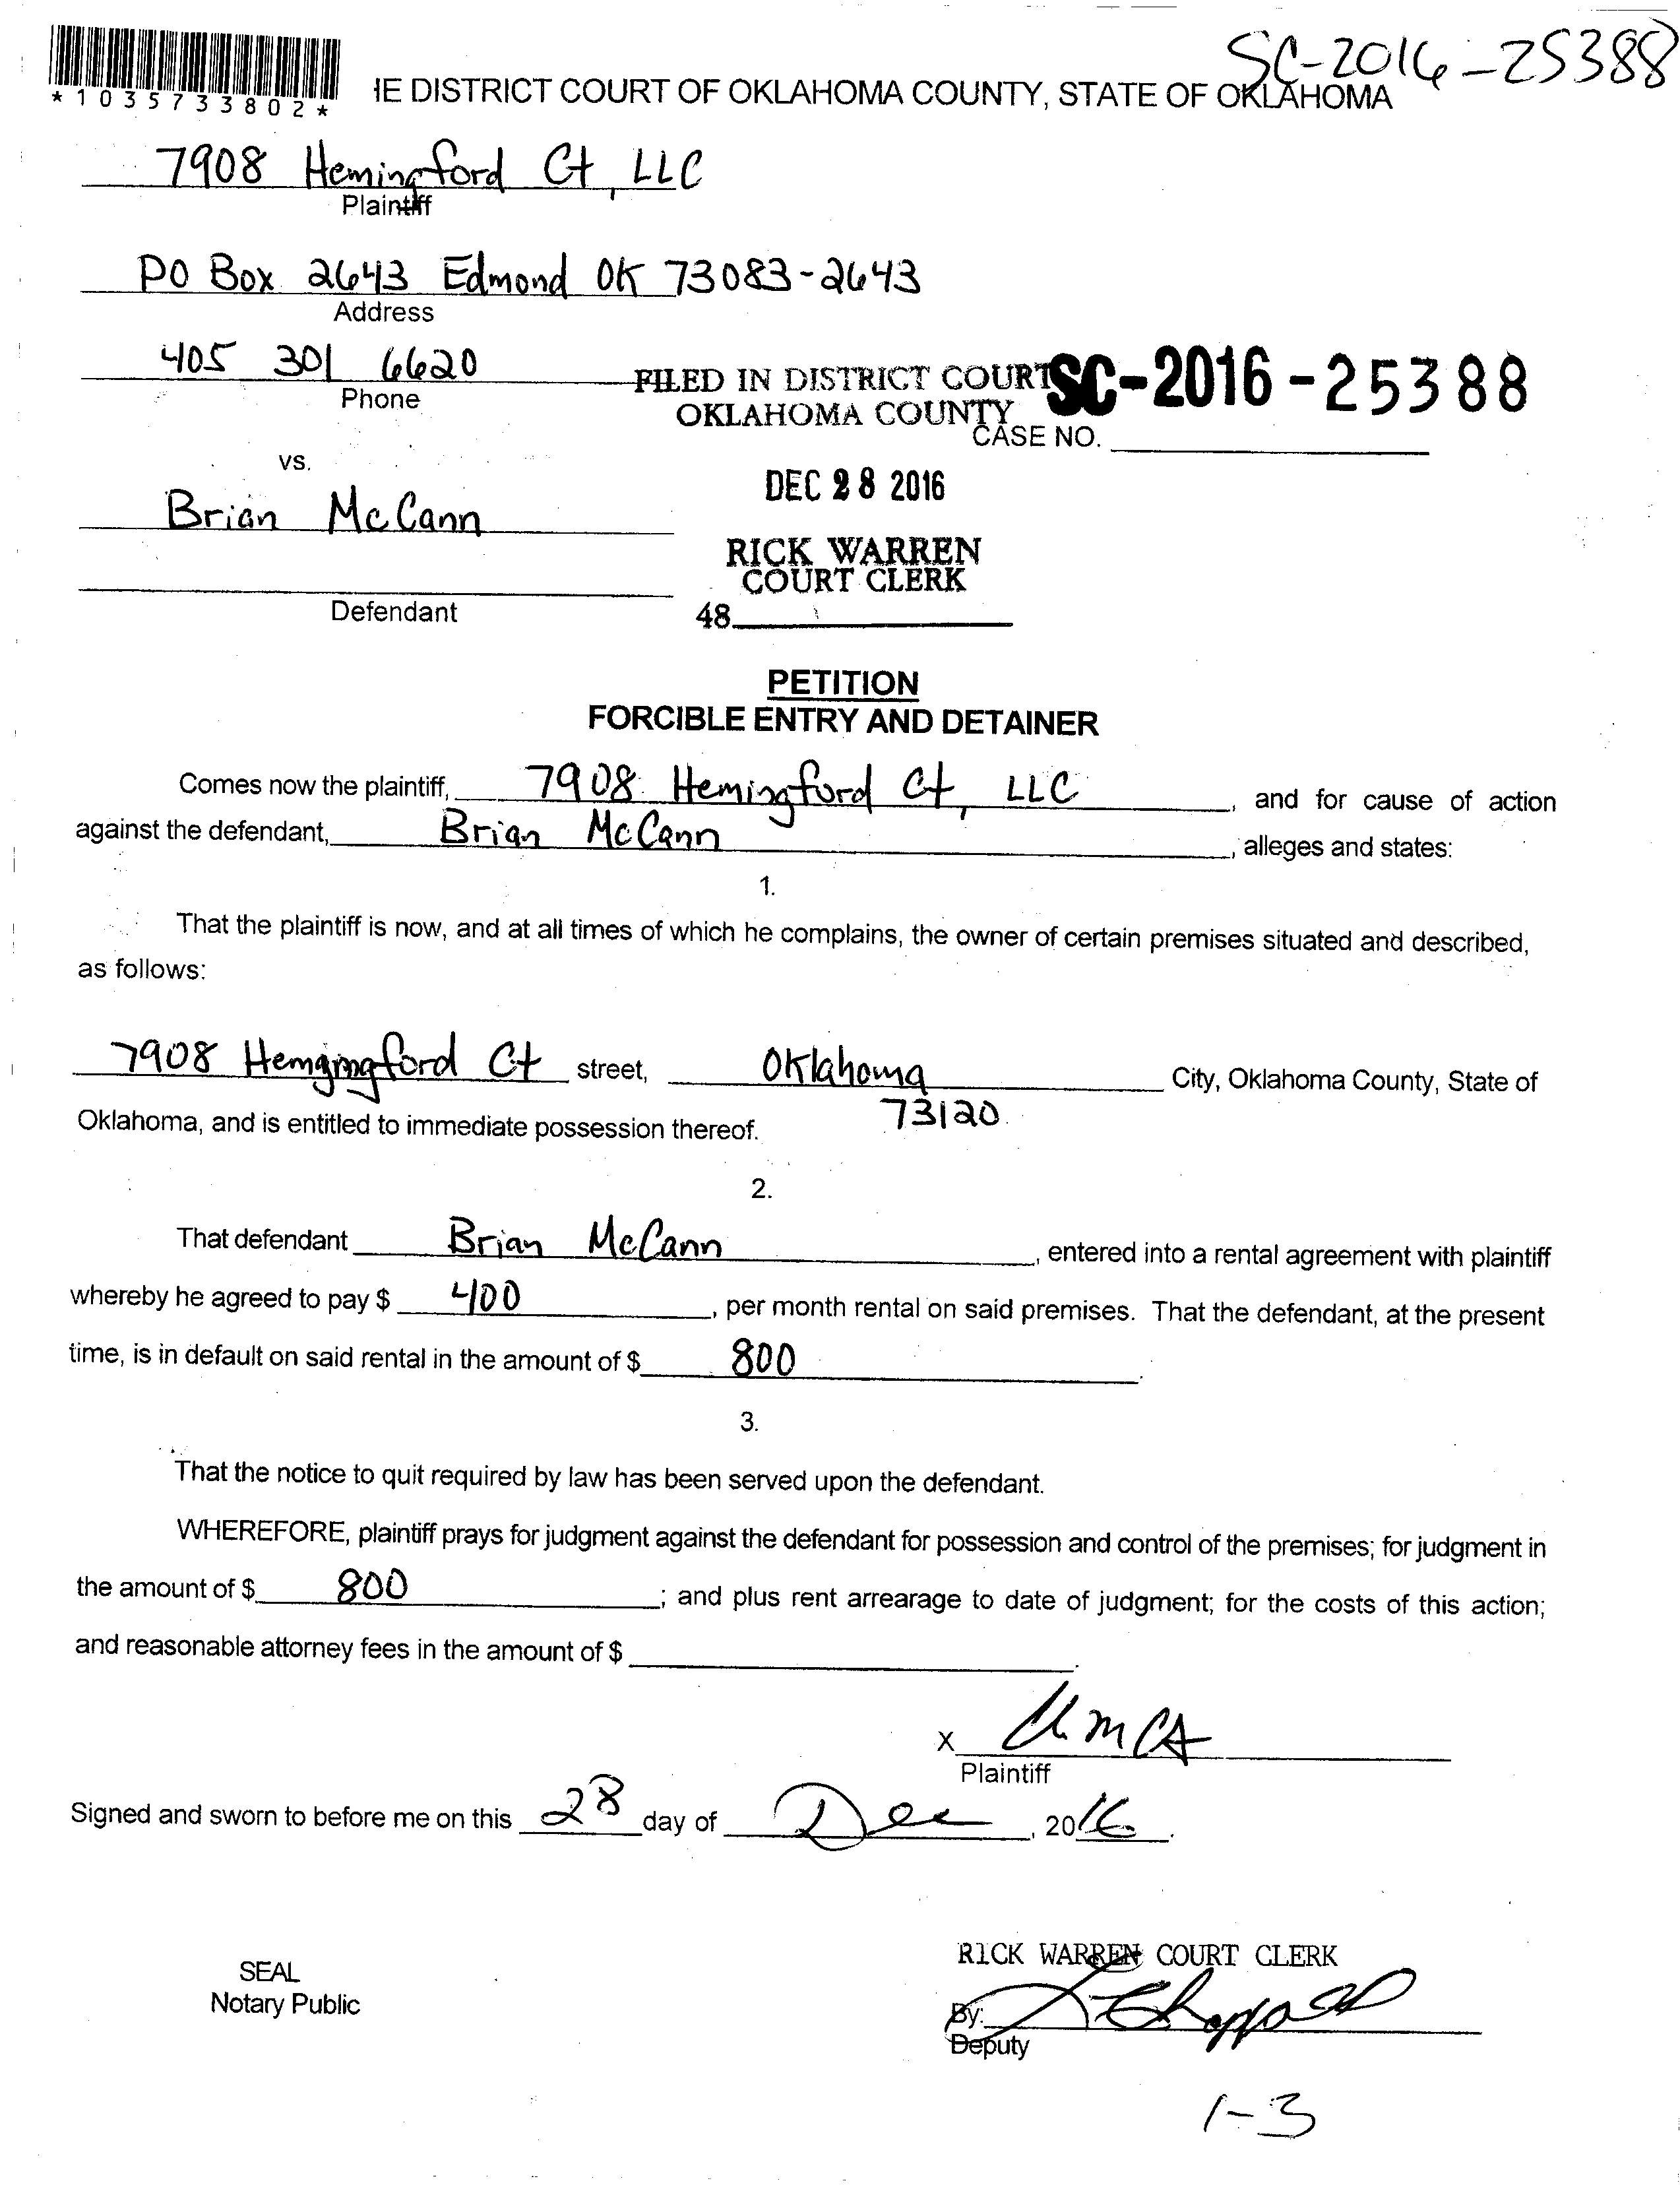 SC-2016-25388
*1035733802*
IE DISTRICT COURT OF OKLAHOMA COUNTY, STATE OF OKLAHOMA
7908 Hemingford Ct, LLC
Plaintiff
PO Box 2643 Edmond OK 73083-2643
Address
405 301 6620
Phone
FILED IN DISTRICT COURT
OKLAHOMA COUNTY
SC-2016-25388
CASE NO.
vs.
DEC 28 2016
Brian McCann
RICK WARREN
COURT CLERK
Defendant
48
PETITION
FORCIBLE ENTRY AND DETAINER
Comes now the plaintiff, 7908 Hemingford Ct, LLC, and for cause of action
against the defendant, Brian McCann, alleges and states:
1.
That the plaintiff is now, and at all times of which he complains, the owner of certain premises situated and described,
as follows:
7908 Hemgingford Ct street, Oklahoma City, Oklahoma County, State of
73120
Oklahoma, and is entitled to immediate possession thereof.
2.
That defendant Brian McCann, entered into a rental agreement with plaintiff
whereby he agreed to pay $ 400, per month rental on said premises. That the defendant, at the present
time, is in default on said rental in the amount of $ 800.
3.
That the notice to quit required by law has been served upon the defendant.
WHEREFORE, plaintiff prays for judgment against the defendant for possession and control of the premises; for judgment in
the amount of $ 800; and plus rent arrearage to date of judgment; for the costs of this action;
and reasonable attorney fees in the amount of $ .
X
Plaintiff
Signed and sworn to before me on this 28 day of Dec, 2016.
SEAL
Notary Public
RICK WARREN COURT CLERK
By:
Deputy
1-3